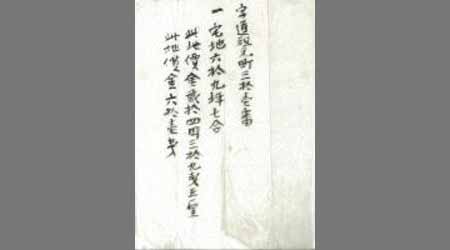 字道段元町三拾壱番
一宅地六拾九坪七合
此地價金貳拾四円三拾九銭三厘
此地價金六拾壱銭